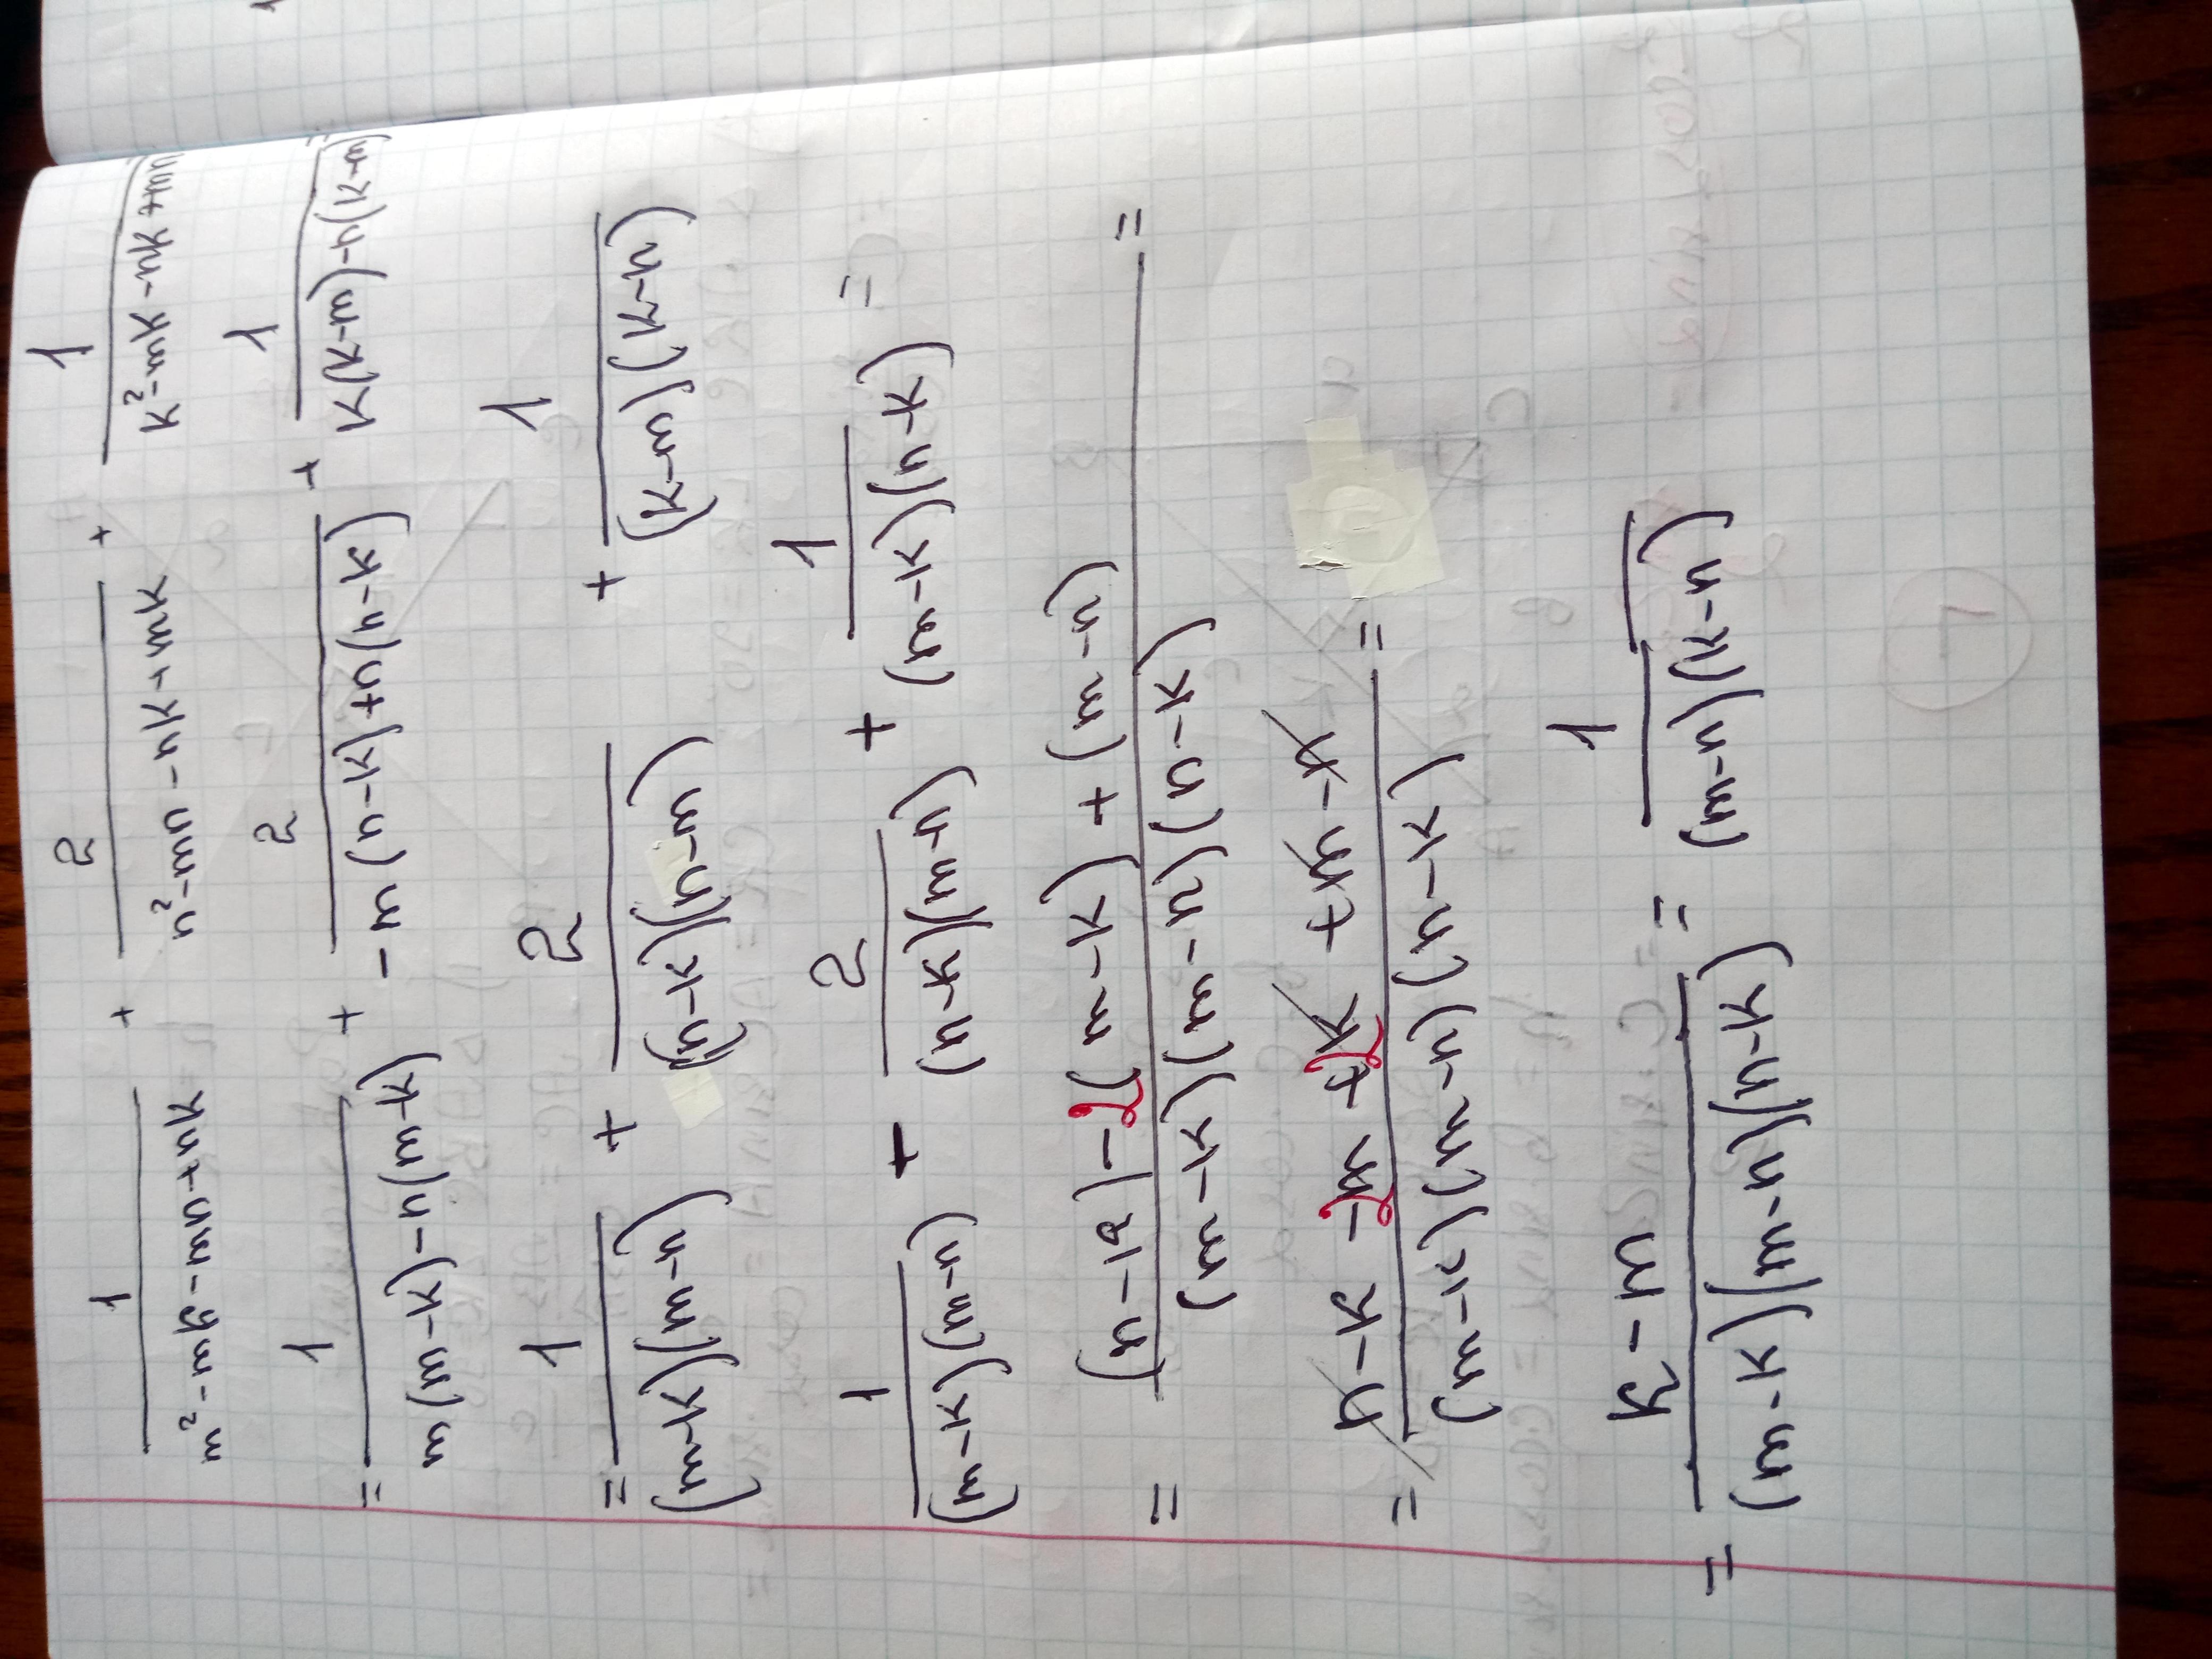 1 / (m² - mk - mn + nk) + 2 / (n² - mn - nk + mk) + 1 / (k² - mk - nk + mn)
= 1 / (m(m-k) - n(m-k)) + 2 / (-m(n-k) + n(n-k)) + 1 / (k(k-m) - n(k-m)) =
= 1 / ((m-k)(m-n)) + 2 / ((n-k)(n-m)) + 1 / ((k-m)(k-n))
1 / ((m-k)(m-n)) + 2 / ((n-k)(m-n)) + 1 / ((m-k)(n-k)) =
= ((n-k) - 2(m-k) + (m-n)) / ((m-k)(m-n)(n-k)) =
= (n - k - 2m + 2k + m - n) / ((m-k)(m-n)(n-k)) =
= (k - m) / ((m-k)(m-n)(n-k)) = 1 / ((m-n)(k-n))